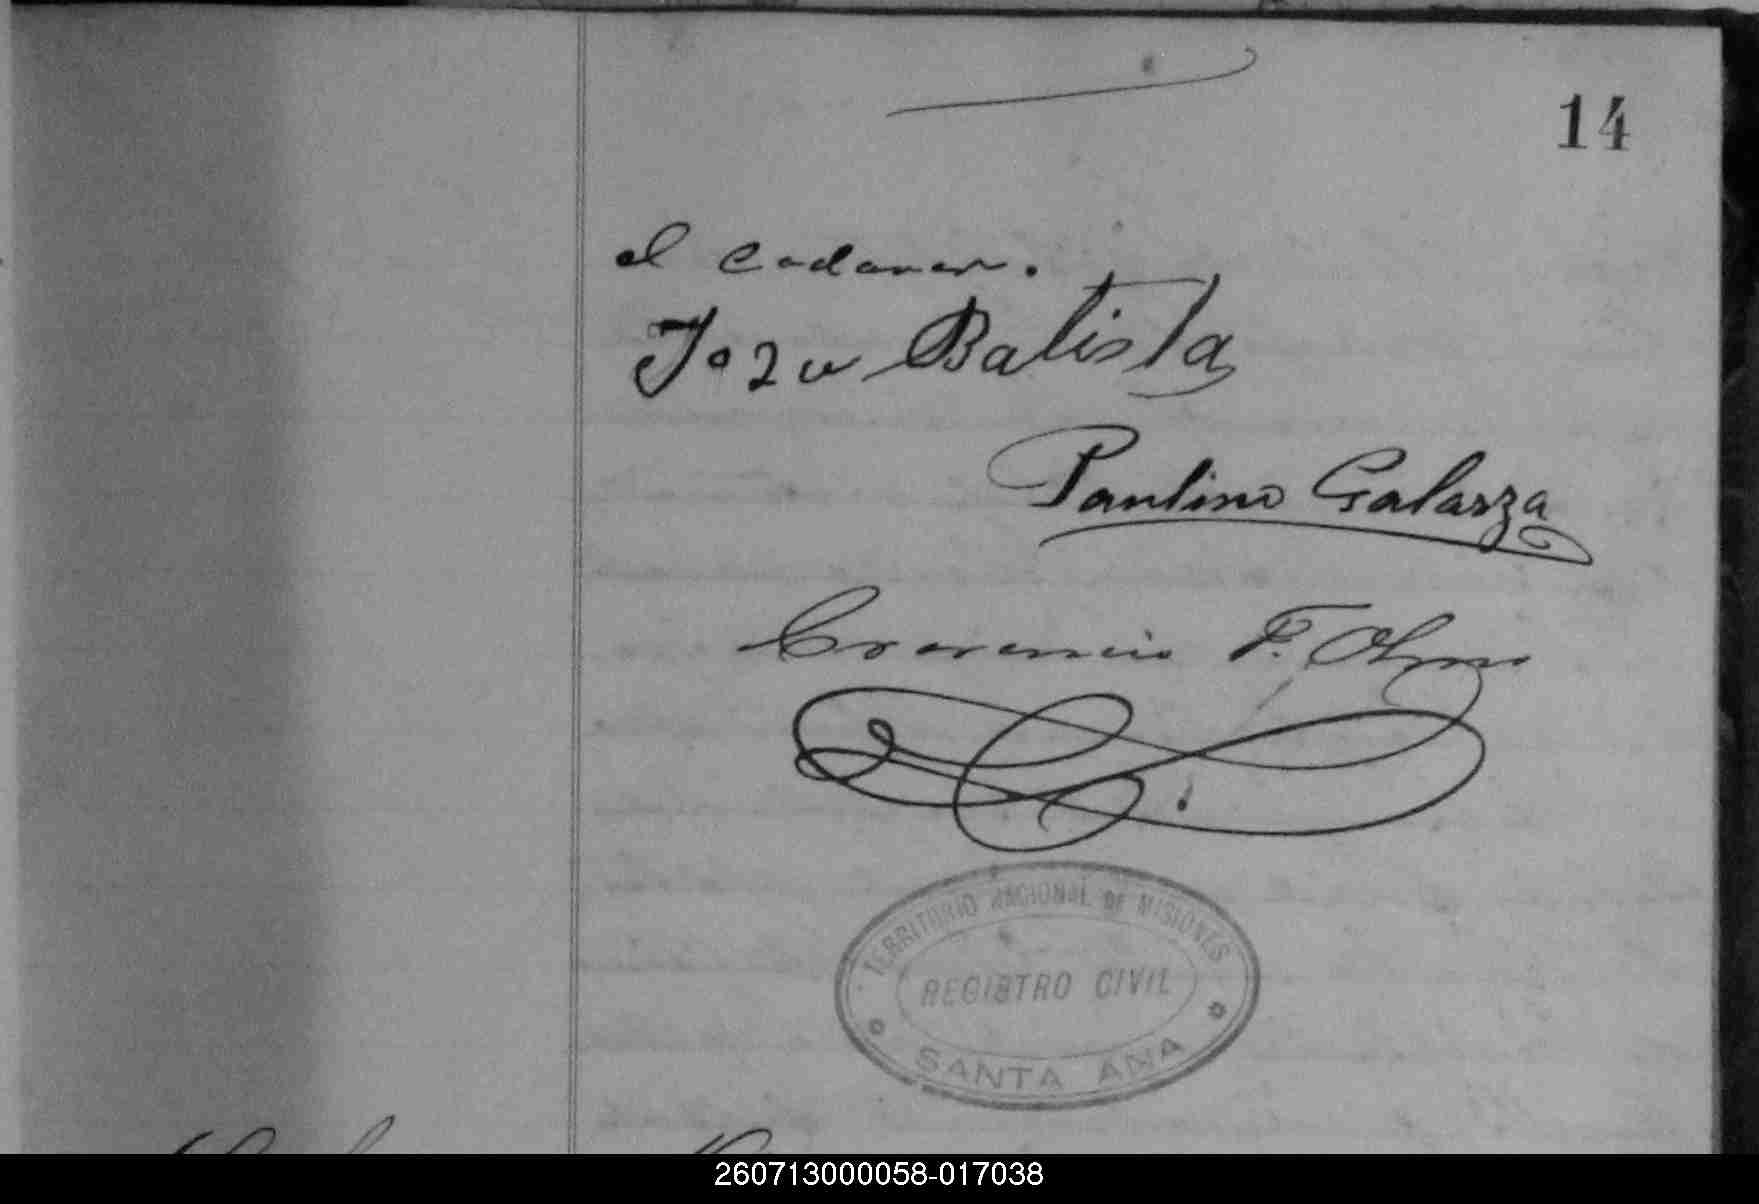 14
el cadaver.
Jozu Batista
Paulino Galarza
F. Olmo
TERRITORIO NACIONAL DE MISIONES
REGISTRO CIVIL
SANTA ANA
260713000058-017038